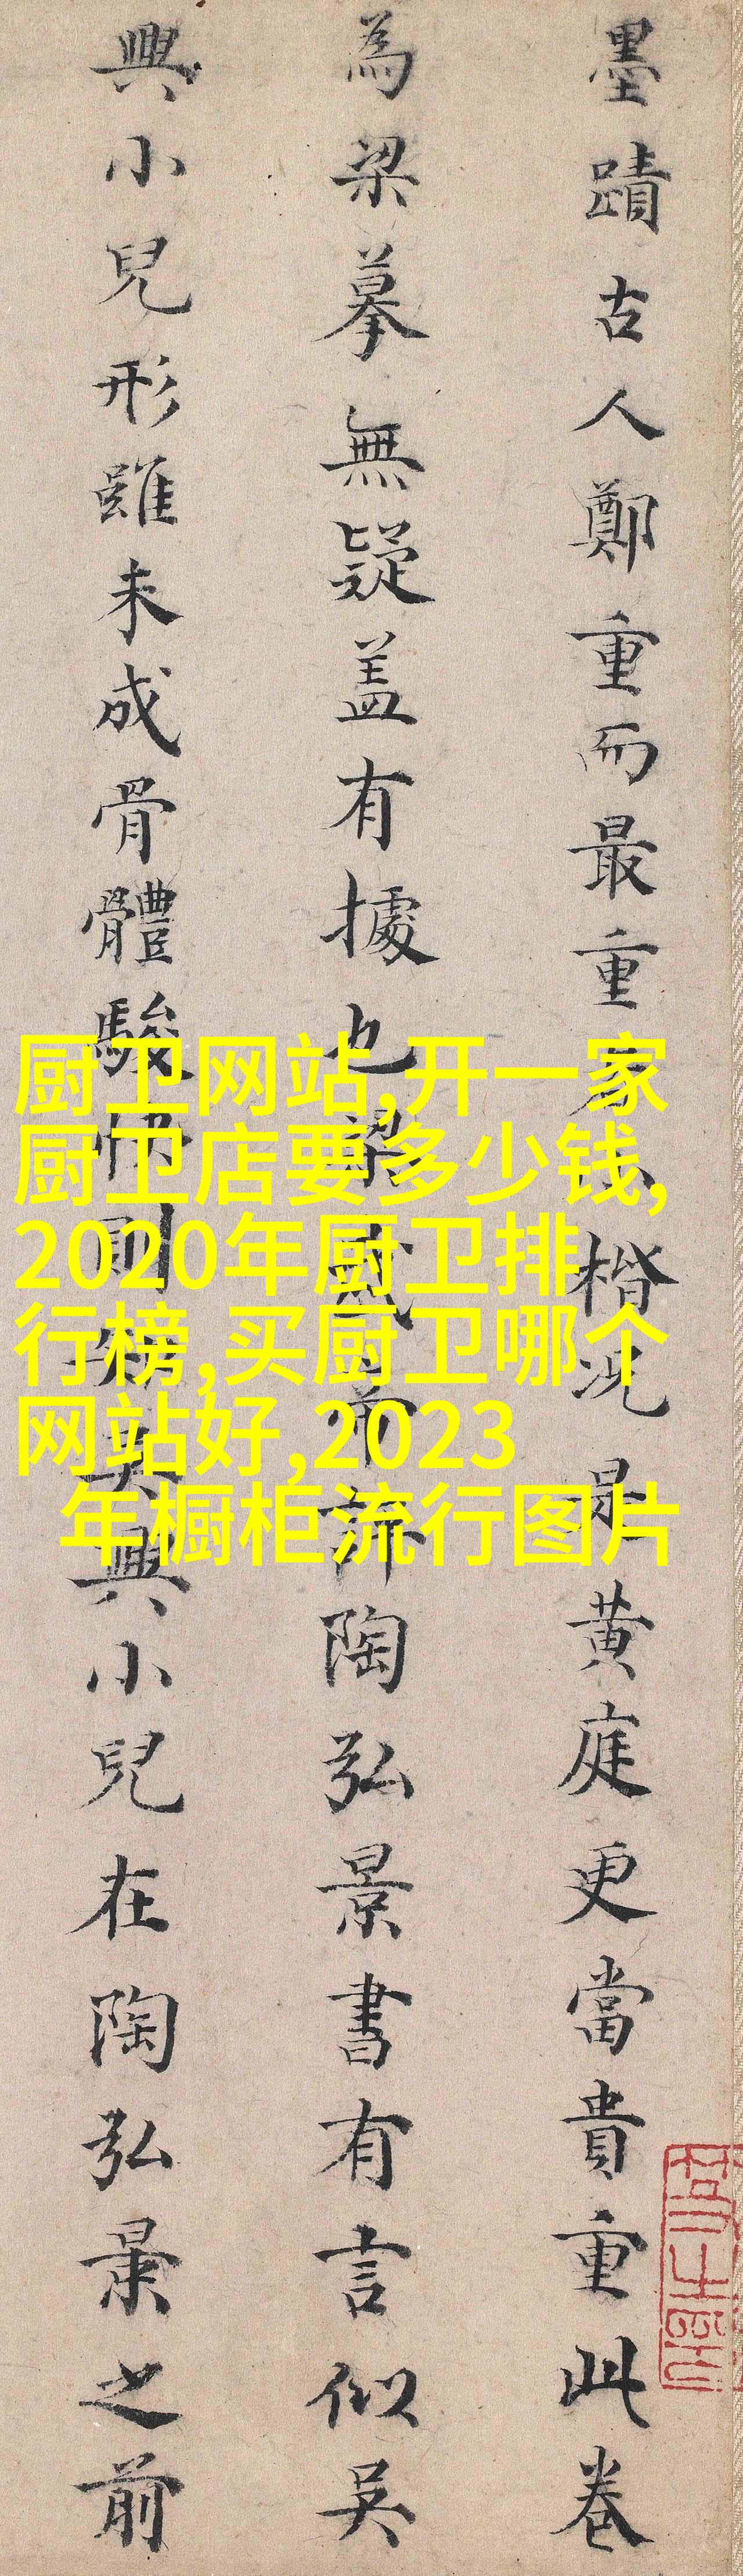 墨蹟古人鄭重而最重小楷况是黄庭更當貴重此卷
為梁摹無疑盖有據也梁武帝評陶弘景書有言似吴
興小兒形雖未成骨體駿快則知吴興小兒在陶弘景之前
厨卫网站,开一家
厨卫店要多少钱,
2020年厨卫排
行榜,买厨卫哪个
网站好,2023
年橱柜流行图片